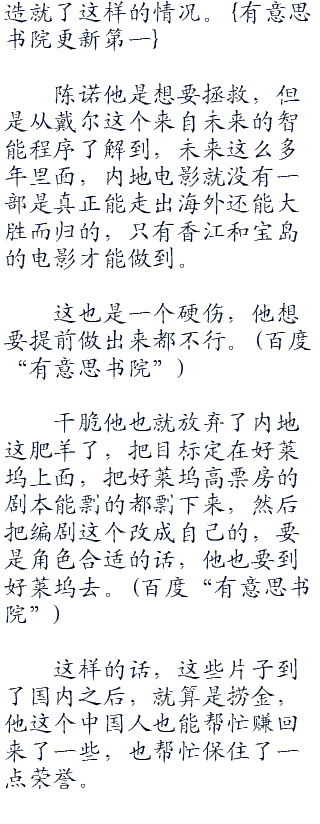 造就了这样的情况。{有意思
书院更新第一}
陈诺他是想要拯救，但
是从戴尔这个来自未来的智
能程序了解到，未来这么多
年里面，内地电影就没有一
部是真正能走出海外还能大
胜而归的，只有香江和宝岛
的电影才能做到。
这也是一个硬伤，他想
要提前做出来都不行。(百度
“有意思书院”)
干脆他也就放弃了内地
这肥羊了，把目标定在好莱
坞上面，把好莱坞高票房的
剧本能剽的都剽下来，然后
把编剧这个改成自己的，要
是角色合适的话，他也要到
好莱坞去。(百度“有意思书
院”)
这样的话，这些片子到
了国内之后，就算是捞金，
他这个中国人也能帮忙赚回
来了一些，也帮忙保住了一
点荣誉。